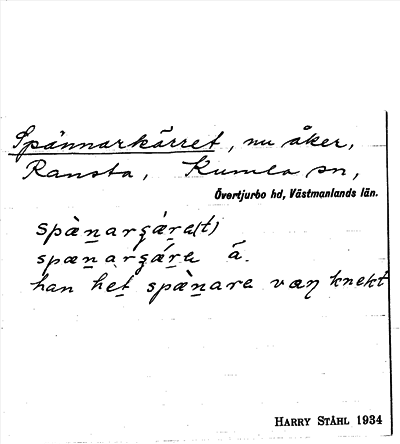 Spännarkärret, nu åker,
Ransta, Kumla sn,
Övertjurbo hd, Västmanlands län.
spæ̀n̲arçǽr̲e(t)
spæn̲arçǽr̲e å.
han he̲t spæ̀n̲are væɳ knekt
HARRY STÅHL 1934